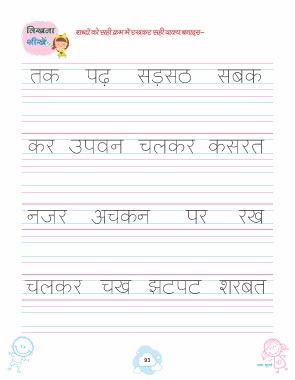 लिखना
सीखें-
शब्दों को सही क्रम में रखकर सही वाक्य बनाइए-
तक पढ़ सड़सठ सबक
कर उपवन चलकर कसरत
नजर अचकन पर रख
चलकर चख झटपट शरबत
93